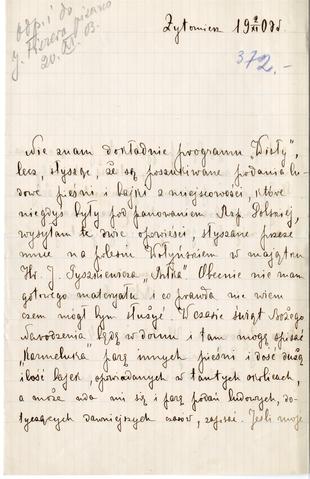 odp. i do
J. Fierera pisano
20. XI. 03.
Żytomierz 19 9/XI 03 r.
372.-
Nie znam dokładnie programu „Wisły",
lecz, słysząc, że są poszukiwane podania lu-
dowe pieśni i bajki z miejscowości, które
niegdyś były pod panowaniem Rzp. Polskiej,
wysyłam te dwie opowieści, słyszane przeze
mnie na polesiu Wołyńskiem w majątku
Hr. J. Tyszkiewicza Obecnie nie mam
gotowego materyału i co prawda nie wiem
czem mógł bym służyć. W czasie świąt Bożego
Narodzenia będę w domu i tam mogę spisać
„Karmeluka" parę innych pieśni i dość dużą
ilość bajek, opowiadanych w tamtych okolicach,
a może uda mi się i parę podań ludowych, do-
tyczących dawniejszych czasów, zapisać. Jeśli moje